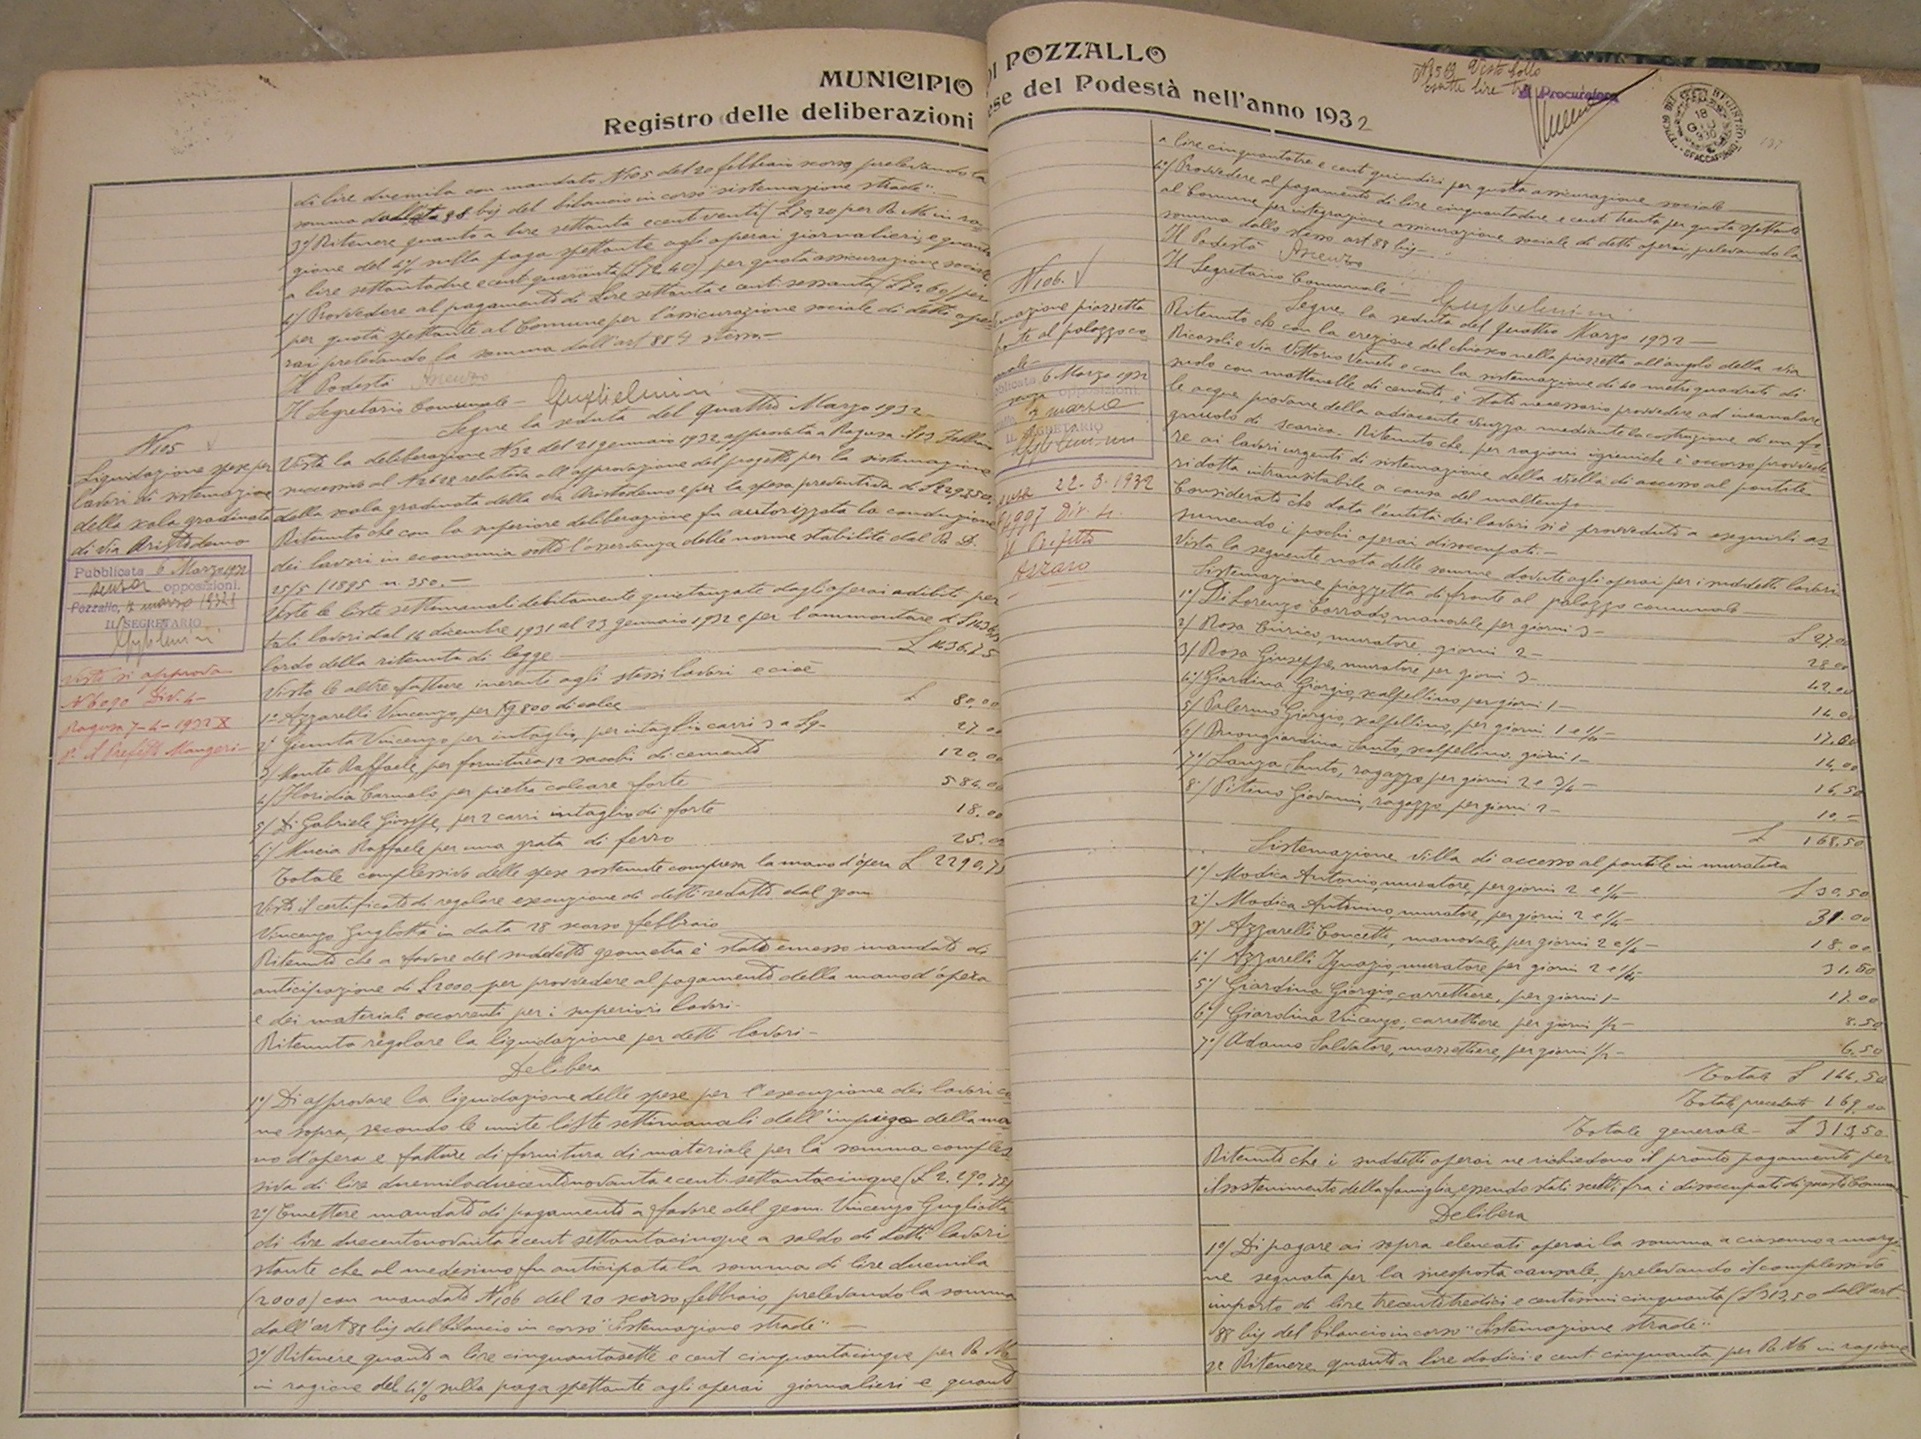 MUNICIPIO DI POZZALLO
Registro delle deliberazioni ese del Podestà nell'anno 1932
di lire duemila con mandato N105 del 20 febbraio scorso, prelevando la
somma dall'art 88 bis del bilancio in corso "sistemazione strade".
3°/ Ritenere quanto a lire settanta e cent venti (£70,20 per R. M. in ra-
gione del 4% sulla paga spettante agli operai giornalieri, e quanto
a lire settantadue e cent quaranta (£72.40) per quota assicurazione sociale
4/ Provvedere al pagamento di Lire settanta e cent sessanta (£70.60) per
per quota spettante al Comune per l'assicurazione sociale di detti ope-
rai prelevando la somma dall'art 88 stesso.—
Il Podestà
Il Segretario Comunale — Guglielmini
Segue la seduta del quattro Marzo 1932
N105
Liquidazione spese per
lavori di sistemazione
della scala gradinata
di via Aristodemo
Pubblicata 6 Marzo 1932
senza opposizioni.
Pozzallo, 7 marzo 1932
IL SEGRETARIO
Guglielmini
Visto si approva
N6090 Div. 4-
Ragusa 7-4-1932 X
p. il Prefetto Mangeri-
Vista la deliberazione N32 del 21 gennaio 1932, approvata a Ragusa il 13 Febbraio
successivo al N2628 relativa all'approvazione del progetto per la sistemazione
della scala gradinata della via Aristodemo e per la spesa preventiva di £2293,50,
Ritenuto che con la superiore deliberazione fu autorizzata la conduzione
dei lavori in economia sotto l'osservanza delle norme stabilite dal R. D.
25/5/1895 n. 350.—
Viste le liste settimanali debitamente quietanzate dagli operai adibiti per
tali lavori dal 14 dicembre 1931 al 23 gennaio 1932 e per l'ammontare di £1436,75
lordo della ritenuta di legge £ 1436,75
Visto le altre fatture inerenti agli stessi lavori e cioè
1° Azzarelli Vincenzo, per Kg 800 di calce £ 80,00
2° Giunta Vincenzo per intaglio, per intaglio carri 3 a £9- 27.00
3/ Monte Raffaele, per fornitura 12 sacchi di cemento 120,00
4/ Floridia Carmelo per pietra calcare forte 584.00
5/ Di Gabriele Giuseppe, per 2 carri intaglio di forte 18.00
6/ Mucia Raffaele per una grata di ferro 25.00
Totale complessivo delle spese sostenute compresa la mano d'opera £ 2290,75
Visto il certificato di regolare esecuzione di detti redatto dal geom
Vincenzo Gugliotta in data 28 scorso febbraio
Ritenuto che a favore del suddetto geometra è stato emesso mandato di
anticipazione di £2000 per provvedere al pagamento della mano d'opera
e dei materiali occorrenti per i superiori lavori-
Ritenuta regolare la liquidazione per detti lavori-
Delibera
1°/ Di approvare la liquidazione delle spese per l'esecuzione dei lavori co
me sopra, secondo le unite liste settimanali dell'impiego della ma
no d'opera e fatture di fornitura di materiale per la somma comples
siva di lire duemiladuecentonovanta e cent. settantacinque (£ 2.290.75)
2°/ Emettere mandato di pagamento a favore del geom. Vincenzo Gugliotta
di lire duecentonovanta e cent settantacinque a saldo di detti lavori
stante che al medesimo fu anticipata la somma di lire duemila
(2000) con mandato N106 del 20 scorso febbraio, prelevando la somma
dall'art 88 bis del bilancio in corso "Sistemazione strade" —
3°/ Ritenere quanto a lire cinquantasette e cent cinquantacinque per R. M.
in ragione del 4% sulla paga spettante agli operai giornalieri e quanto
Visto bollo
esatte lire tre
Il Procuratore
18
GIU
a lire cinquantatre e cent quindici per quota assicurazione sociale
4°/ Provvedere al pagamento di lire cinquantadue e cent trenta per quota spettante
al Comune per integrazione assicurazione sociale di detti operai, prelevando la
somma dallo stesso art 88 bis—
Il Podestà
Il Segretario Comunale — Guglielmini
Segue la seduta del quattro Marzo 1932—
N106.
mazione piazzetta
fronte al palazzo co-
munale
Pubblicata 6 Marzo 1932
senza opposizioni.
7 marzo
IL SEGRETARIO
Guglielmini
22-3-1932
Div. 4.
Il Prefetto
Azzaro
Ritenuto che con la erezione del chiosco nella piazzetta all'angolo della via
Ricasoli e via Vittorio Veneto e con la sistemazione di 40 metri quadrati di
suolo con mattonelle di cemento, è stato necessario provvedere ad incanalare
le acque piovane della adiacente viuzza mediante la costruzione di un cu-
nicolo di scarico. Ritenuto che, per ragioni igieniche è occorso provvede-
re ai lavori urgenti di sistemazione della villa di accesso al pontile
ridotta intransitabile a causa del maltempo
Considerato che data l'entità dei lavori si è provveduto a eseguirli as-
sumendo i pochi operai disoccupati.—
Vista la seguente nota delle somme dovute agli operai per i suddetti lavori
Sistemazione piazzetta di fronte al palazzo comunale
1°/ Di Lorenzo Corrado, manovale per giorni 3— £ 27,00
2/ Rosa Enrico, muratore, giorni 2— 28.00
3/ Rosa Giuseppe, muratore per giorni 3— 42.00
4/ Giardina Giorgio, scalpellino, per giorni 1— 14.00
5/ Palermo Giorgio, scalpellino, per giorni 1 e 1/4 17.00
6/ Buongiardina Santo, scalpellino, giorni 1— 14,00
7°/ Lanza Santo, ragazzo per giorni 2 e 3/4— 16,50
8°/ Pitino Giovanni, ragazzo per giorni 2— 10.—
£ 168,50
Sistemazione villa di accesso al pontile in muratura
1°/ Modica Antonio, muratore, per giorni 2 e 1/4— £ 30,50
2°/ Modica Antonino, muratore, per giorni 2 e 1/4— 31.00
3°/ Azzarelli Concetto, manovale, per giorni 2 e 1/4— 18.00
4°/ Azzarelli Ignazio, muratore per giorni 2 e 1/4— 31.00
5°/ Giardina Giorgio, carrettiere, per giorni 1— 17.00
6°/ Giardina Vincenzo, carrettiere per giorni 1/2— 8.50
7°/ Adamo Salvatore, carrettiere, per giorni 1/2— 6,50
Totale £ 144,50
Totale precedente 169.00
Totale generale— £ 313,50
Ritenuto che i suddetti operai ne richiedono il pronto pagamento per
il sostenimento della famiglia, essendo stati scelti fra i disoccupati di questo Comune
Delibera
1°/ Di pagare ai sopra elencati operai la somma a ciascuno a margi-
ne segnata per la suesposta causale, prelevando il complessivo
importo di lire trecentotredici e centesimi cinquanta (£313,50 dall'art.
88 bis del bilancio in corso "Sistemazione strade".
2° Ritenere quanto a lire dodici e cent. cinquanta per R. M. in ragione